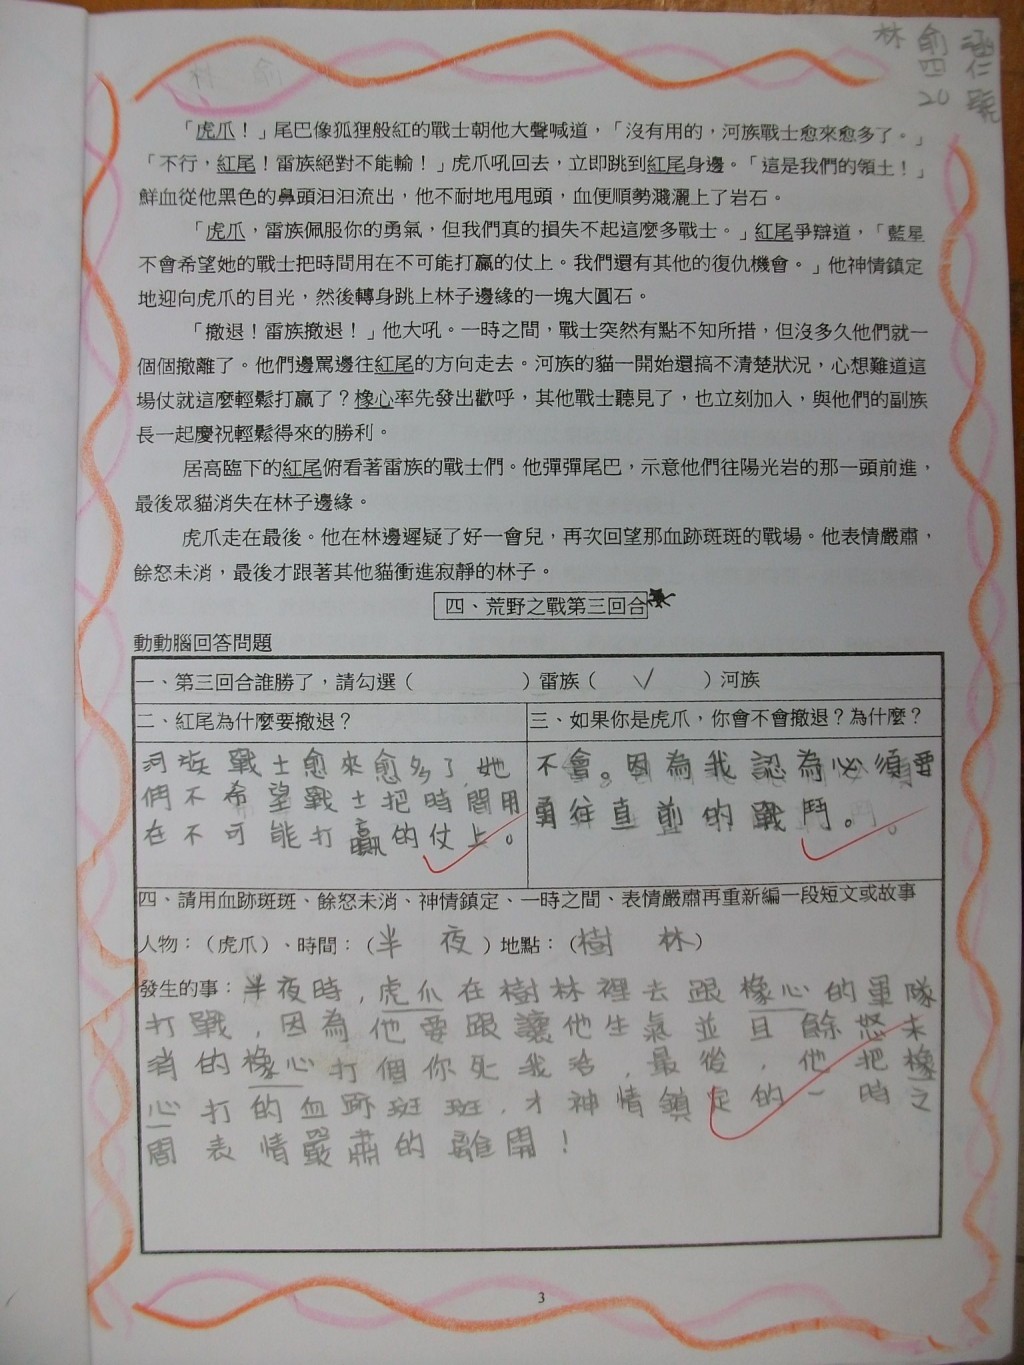 林俞涵
四仁
20號
「虎爪！」尾巴像狐狸般紅的戰士朝他大聲喊道，「沒有用的，河族戰士愈來愈多了。」
「不行，紅尾！雷族絕對不能輸！」虎爪吼回去，立即跳到紅尾身邊。「這是我們的領土！」
鮮血從他黑色的鼻頭汩汩流出，他不耐地甩甩頭，血便順勢濺灑上了岩石。
「虎爪，雷族佩服你的勇氣，但我們真的損失不起這麼多戰士。」紅尾爭辯道，「藍星
不會希望她的戰士把時間用在不可能打贏的仗上。我們還有其他的復仇機會。」他神情鎮定
地迎向虎爪的目光，然後轉身跳上林子邊緣的一塊大圓石。
「撤退！雷族撤退！」他大吼。一時之間，戰士突然有點不知所措，但沒多久他們就一
個個撤離了。他們邊罵邊往紅尾的方向走去。河族的貓一開始還搞不清楚狀況，心想難道這
場仗就這麼輕鬆打贏了？橡心率先發出歡呼，其他戰士聽見了，也立刻加入，與他們的副族
長一起慶祝輕鬆得來的勝利。
居高臨下的紅尾俯看著雷族的戰士們。他彈彈尾巴，示意他們往陽光岩的那一頭前進，
最後眾貓消失在林子邊緣。
虎爪走在最後。他在林邊遲疑了好一會兒，再次回望那血跡斑斑的戰場。他表情嚴肅，
餘怒未消，最後才跟著其他貓衝進寂靜的林子。
四、荒野之戰第三回合
動動腦回答問題
一、第三回合誰勝了，請勾選（ ）雷族（ ✓ ）河族
二、紅尾為什麼要撤退？
河族戰士愈來愈多了，她
們不希望戰士把時間用
在不可能打贏的仗上。
三、如果你是虎爪，你會不會撤退？為什麼？
不會。因為我認為必須要
勇往直前的戰鬥。
四、請用血跡斑斑、餘怒未消、神情鎮定、一時之間、表情嚴肅再重新編一段短文或故事
人物：（虎爪）、時間：（半夜）地點：（樹林）
發生的事：半夜時，虎爪在樹林裡去跟橡心的軍隊
打戰，因為他要跟讓他生氣並且餘怒未
消的橡心打個你死我活，最後，他把橡
心打的血跡斑斑，才神情鎮定的一時之
間表情嚴肅的離開！
3